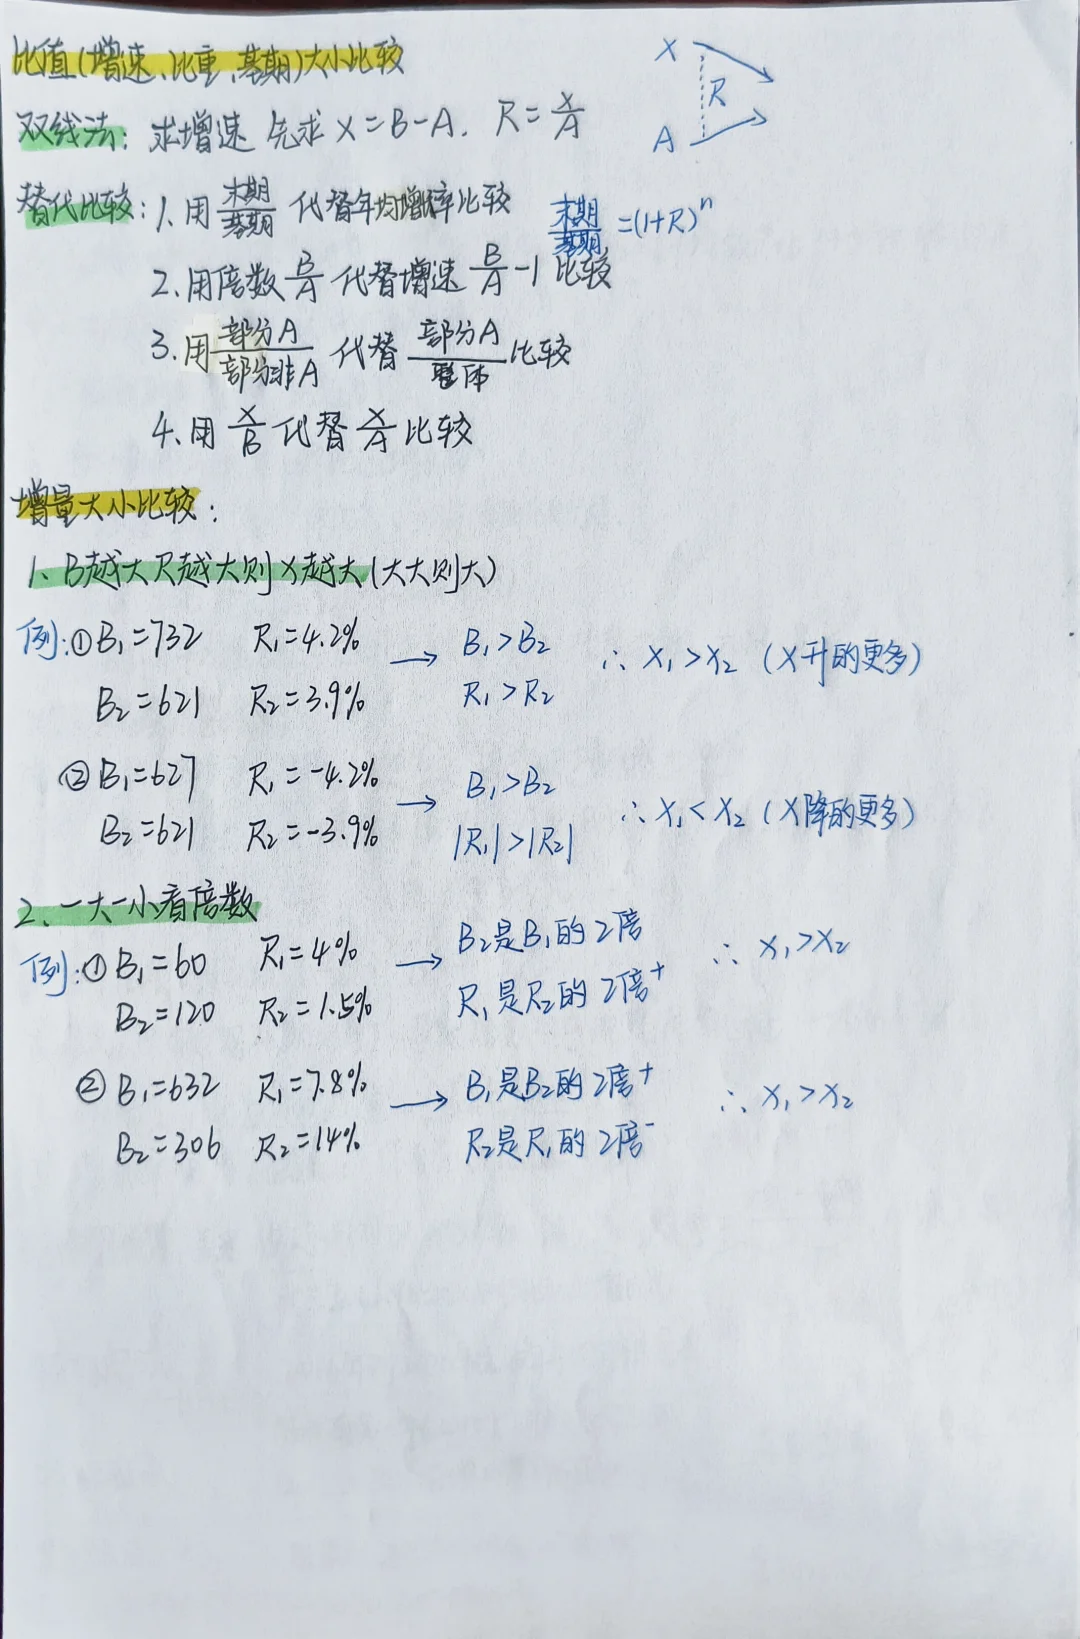 比值(增速、比重、基期)大小比较
双线法: 求增速 先求 X=B-A. R=X/A
X
R
A
替代比较: 1. 用 末期/基期 代替年均增长率比较
末期/基期 =(1+R)^n
2. 用倍数 B/A 代替增速 B/A -1 比较
3. 用 部分A/部分非A 代替 部分A/整体 比较
4. 用 X/B 代替 X/A 比较
增量大小比较:
1、B越大R越大则X越大(大大则大)
例:① B₁=732 R₁=4.2% → B₁>B₂ ∴ X₁>X₂ (X升的更多)
B₂=621 R₂=3.9% R₁>R₂
② B₁=627 R₁=-4.2% → B₁>B₂ ∴ X₁<X₂ (X降的更多)
B₂=621 R₂=-3.9% |R₁|>|R₂|
2、一大一小看倍数
例:① B₁=60 R₁=4% → B₂是B₁的2倍 ∴ X₁>X₂
B₂=120 R₂=1.5% R₁是R₂的2倍⁺
② B₁=632 R₁=7.8% → B₁是B₂的2倍⁺ ∴ X₁>X₂
B₂=306 R₂=14% R₂是R₁的2倍⁻